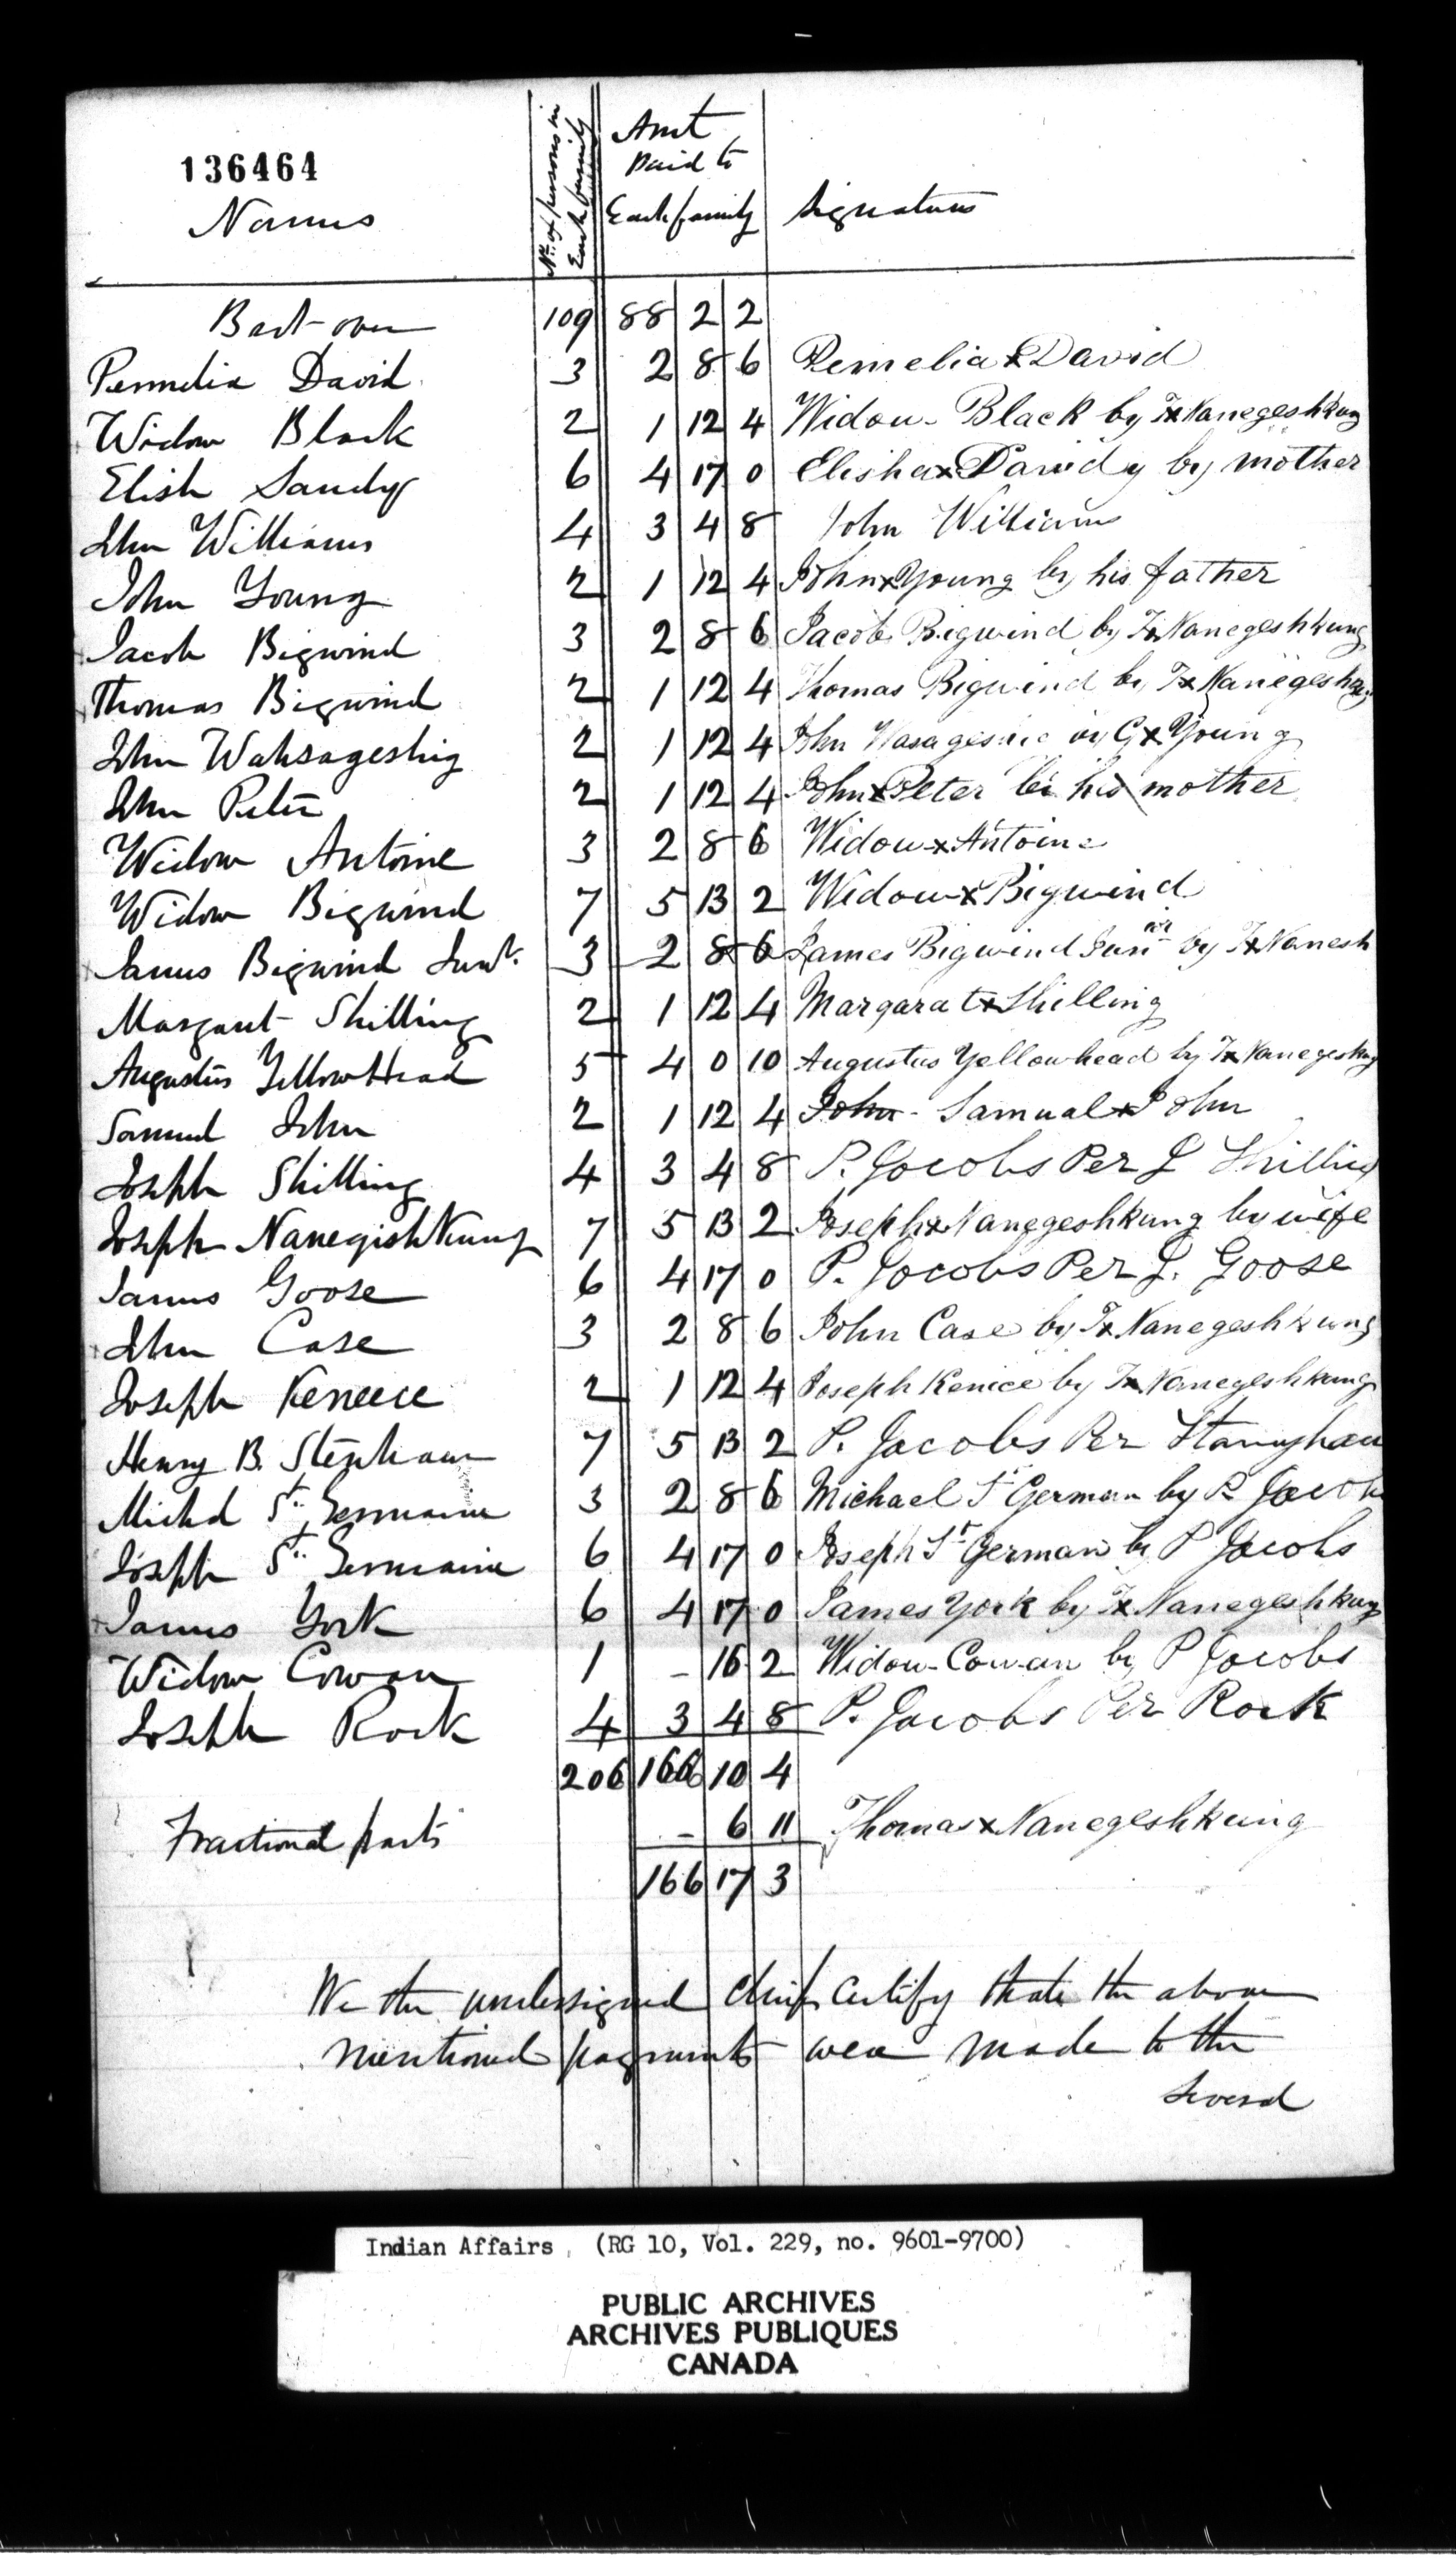 136464
Names
No. of persons in Each family
Amt Paid to Each family
Signatures
Bort over 109 88 2 2
Permelia David 3 2 8 6 Pemelia x David
Widow Black 2 1 12 4 Widow Black by T x Nanegeshkung
Elish Sandy 6 4 17 0 Elisha x Davidy by mother
John Williams 4 3 4 8 John Williams
John Young 2 1 12 4 John x Young by his father
Jacob Bigwind 3 2 8 6 Jacob Bigwind by T x Nanegeshkung
Thomas Bigwind 2 1 12 4 Thomas Bigwind by T x Nanegeshkung
John Wahsageshig 2 1 12 4 John Wasageshic by G x Young
John Peter 2 1 12 4 John x Peter bi his mother
Widow Antoine 3 2 8 6 Widow x Antoine
Widow Bigwind 7 5 13 2 Widow x Bigwind
James Bigwind Junr. 3 2 8 6 James Bigwind Junior by T x Nanesh
Margaret Shilling 2 1 12 4 Margarat x Shilling
Augustus YellowHead 5 4 0 10 Augustus Yellowhead by T x Nanegeshkung
Samuel John 2 1 12 4 John - Samual x John
Joseph Shilling 4 3 4 8 P. Jacobs Per J Shilling
Joseph NanegishKung 7 5 13 2 Joseph x Nanegeshkung by wife
James Goose 6 4 17 0 P. Jacobs Per J. Goose
John Case 3 2 8 6 John Case by T x Nanegeshkung
Joseph Keneece 2 1 12 4 Joseph Kenice by T x Nanegeshkung
Henry B. Stephaun 7 5 13 2 P. Jacobs Per
Michel St. Germaine 3 2 8 6 Michael St German by P. Jacobs
Joseph St. Germaine 6 4 17 0 Joseph St German by P Jacobs
James York 6 4 17 0 James York by T x Nanegeshkung
Widow Cowan 1 - 16 2 Widow Cowan by P Jacobs
Joseph Rock 4 3 4 8 P. Jacobs Per Rock
206 166 10 4
Fractional parts - 6 11 Thomas x Nanegeshkung
166 17 3
We the undersigned Chiefs Certify that the above
mentioned payments were made to the
several
Indian Affairs (RG 10, Vol. 229, no. 9601-9700)
PUBLIC ARCHIVES
ARCHIVES PUBLIQUES
CANADA